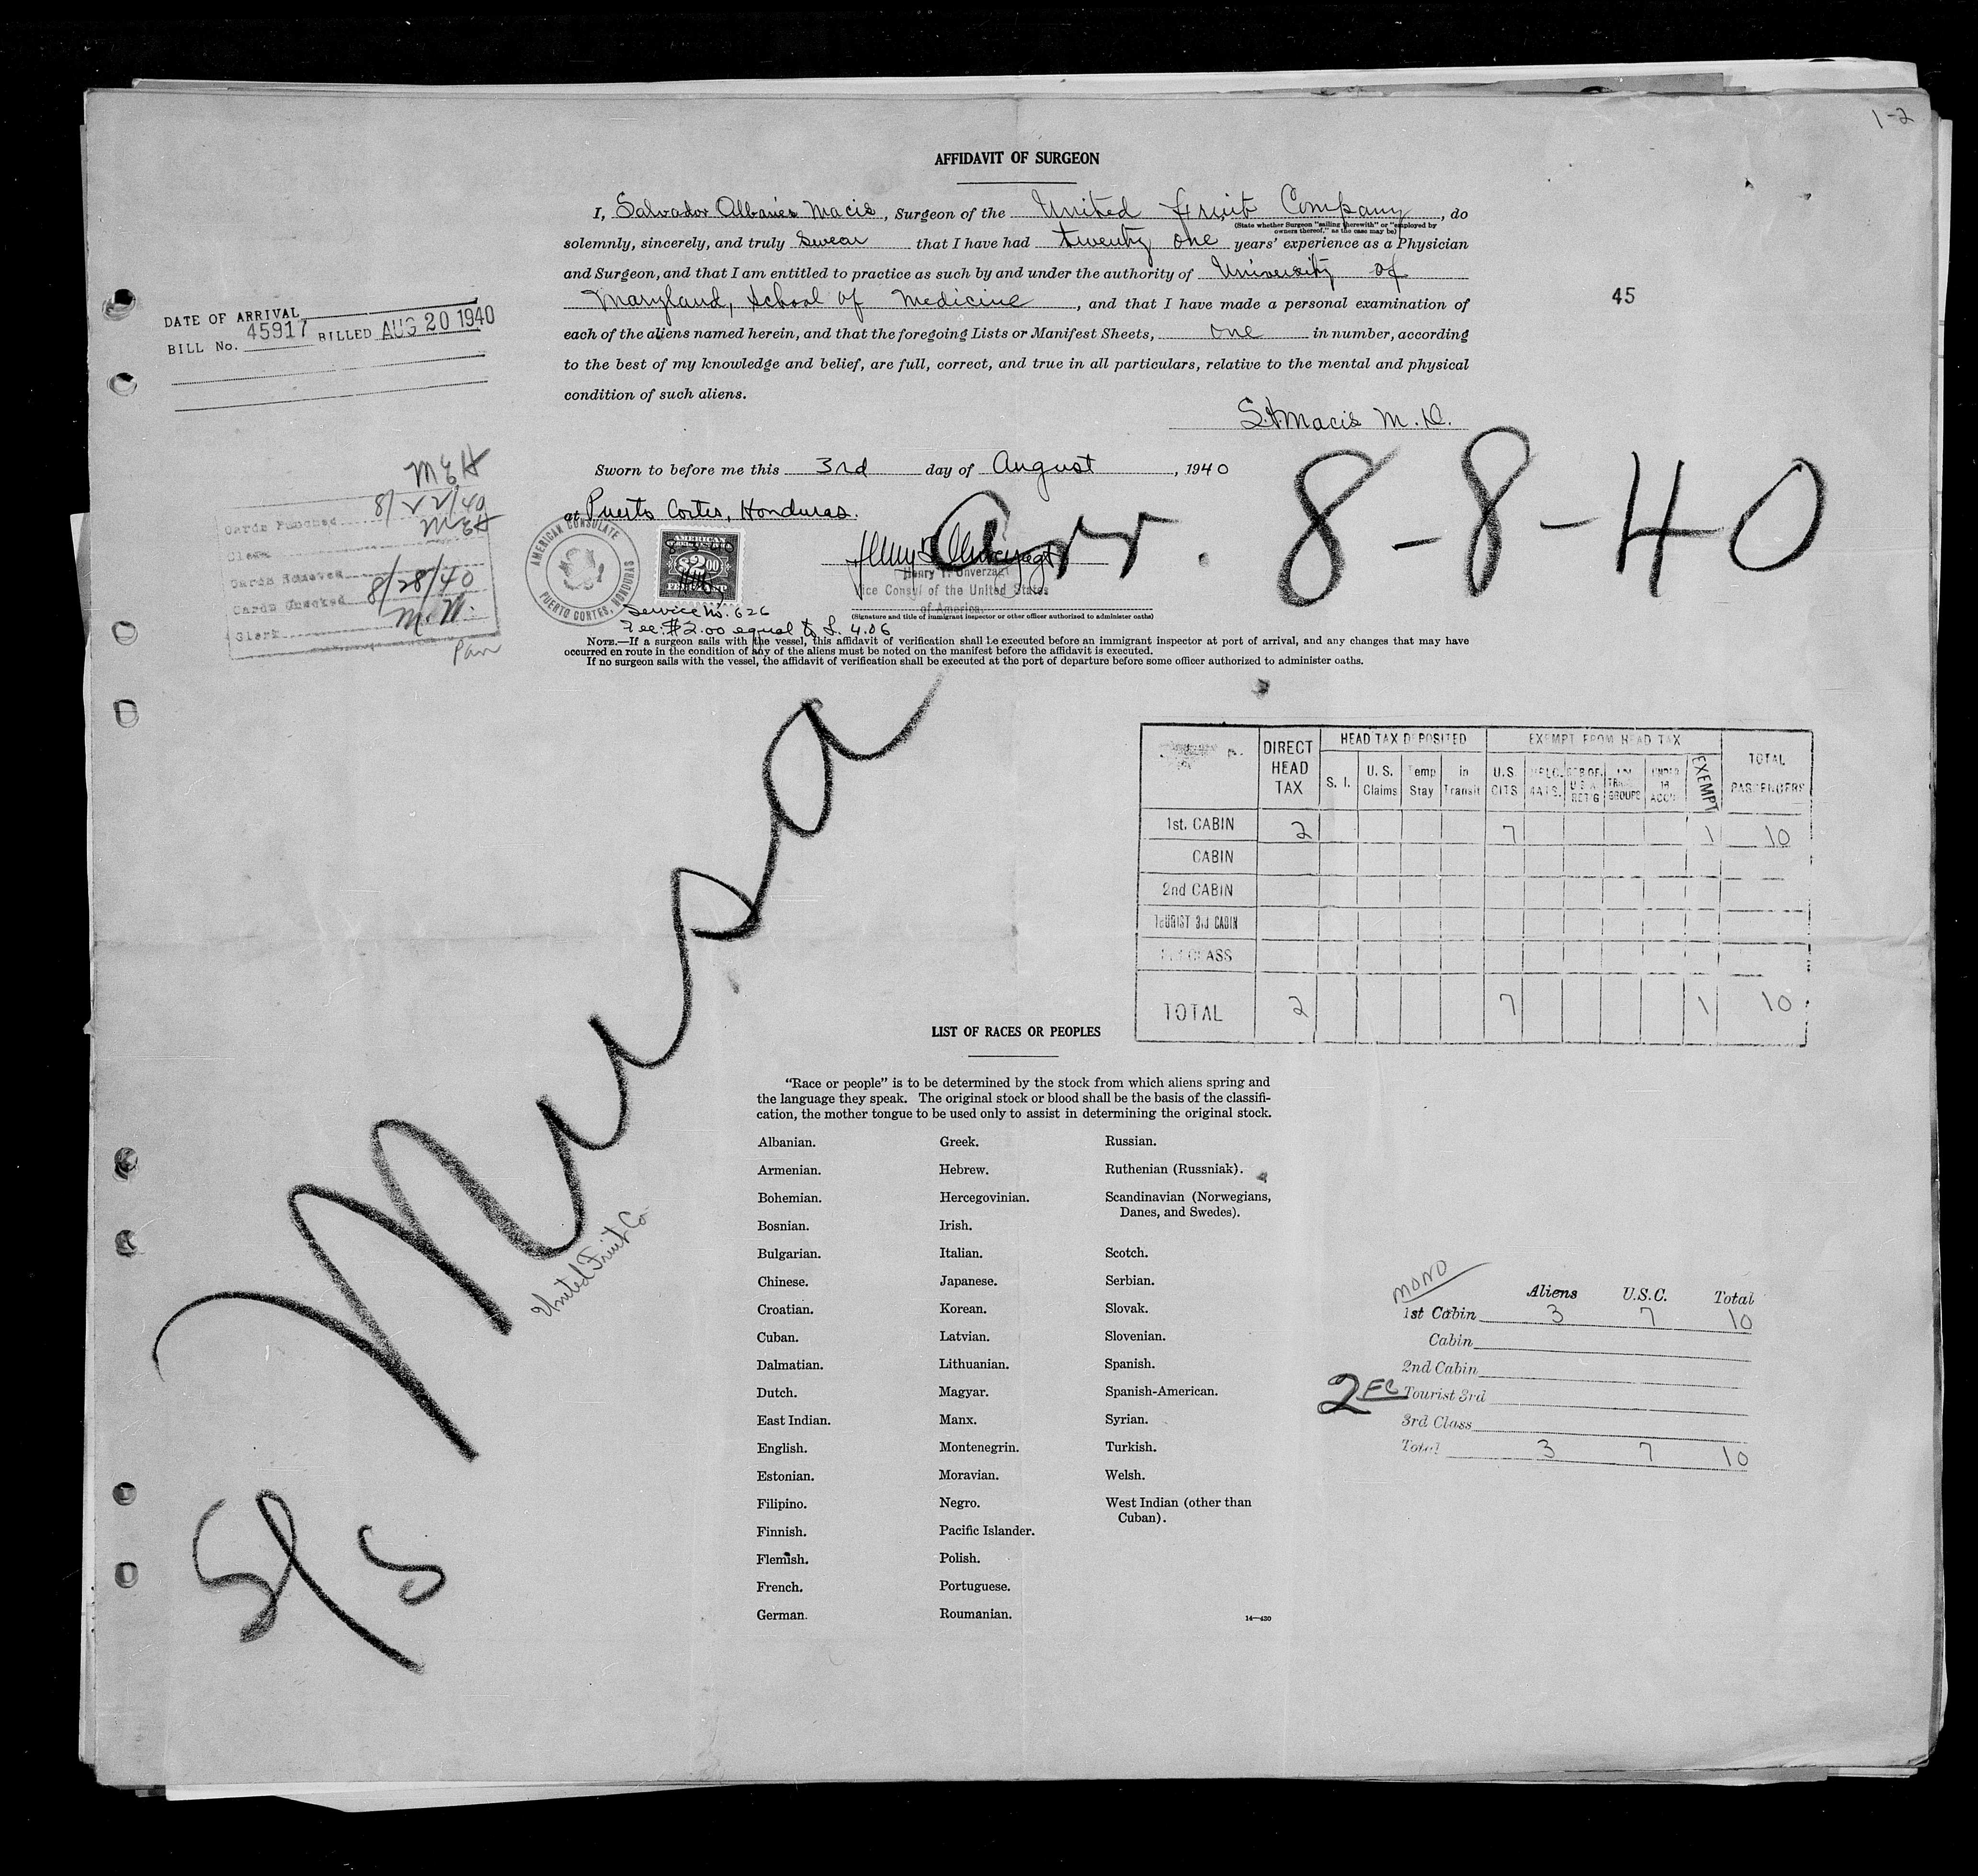 1-2
AFFIDAVIT OF SURGEON
I, Salvador Albanés Macis, Surgeon of the United Fruit Company, do
(State whether Surgeon "sailing therewith" or "employed by
owners thereof," as the case may be)
solemnly, sincerely, and truly swear that I have had twenty one years' experience as a Physician
and Surgeon, and that I am entitled to practice as such by and under the authority of University of
Maryland, School of Medicine, and that I have made a personal examination of
45
each of the aliens named herein, and that the foregoing Lists or Manifest Sheets, one in number, according
to the best of my knowledge and belief, are full, correct, and true in all particulars, relative to the mental and physical
condition of such aliens.
DATE OF ARRIVAL
BILL No. 45917 BILLED AUG 20 1940
S.A. Macis M.D.
Sworn to before me this 3rd day of August, 1940
at Puerto Cortes, Honduras.
Arr. 8-8-40
MEH
Cards Punched 8/22/40
Clerk MEH
Cards
Cards Checked 8/28/40
Clerk M.W.
AMERICAN CONSULATE
PUERTO CORTES, HONDURAS
AMERICAN
$2.00
FEE STAMP
Henry T. Unverzagt
Vice Consul of the United States
of America.
(Signature and title of immigrant inspector or other officer authorized to administer oaths)
Service No. 626
Fee: $2.00 equal to L. 4.06
NOTE.—If a surgeon sails with the vessel, this affidavit of verification shall be executed before an immigrant inspector at port of arrival, and any changes that may have
occurred en route in the condition of any of the aliens must be noted on the manifest before the affidavit is executed.
If no surgeon sails with the vessel, the affidavit of verification shall be executed at the port of departure before some officer authorized to administer oaths.
S/S Musa
United Fruit Co
DIRECT HEAD TAX HEAD TAX DEPOSITED EXEMPT FROM HEAD TAX TOTAL PASSENGERS
S. I. U. S. Claims Temp Stay in Transit U.S. CITS EXEMPT
1st. CABIN 2 7 1 10
CABIN
2nd CABIN
TOURIST 3rd CABIN
CLASS
TOTAL 2 7 1 10
LIST OF RACES OR PEOPLES
"Race or people" is to be determined by the stock from which aliens spring and
the language they speak. The original stock or blood shall be the basis of the classifi-
cation, the mother tongue to be used only to assist in determining the original stock.
Albanian.
Armenian.
Bohemian.
Bosnian.
Bulgarian.
Chinese.
Croatian.
Cuban.
Dalmatian.
Dutch.
East Indian.
English.
Estonian.
Filipino.
Finnish.
Flemish.
French.
German.
Greek.
Hebrew.
Hercegovinian.
Irish.
Italian.
Japanese.
Korean.
Latvian.
Lithuanian.
Magyar.
Manx.
Montenegrin.
Moravian.
Negro.
Pacific Islander.
Polish.
Portuguese.
Roumanian.
Russian.
Ruthenian (Russniak).
Scandinavian (Norwegians,
Danes, and Swedes).
Scotch.
Serbian.
Slovak.
Slovenian.
Spanish.
Spanish-American.
Syrian.
Turkish.
Welsh.
West Indian (other than
Cuban).
14—430
MONO
Aliens U.S.C. Total
1st Cabin 3 7 10
Cabin
2nd Cabin
2 FC
Tourist 3rd
3rd Class
Total 3 7 10